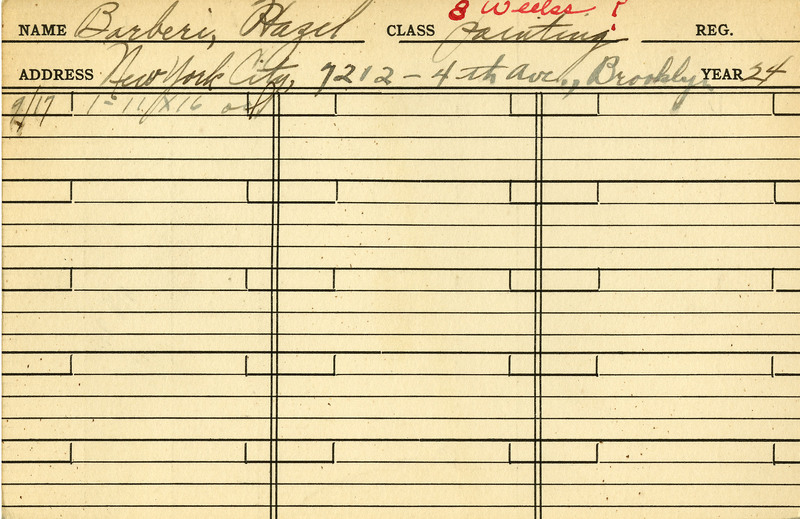 8 Weeks ?
NAME Barberi, Hazel CLASS Painting REG.
ADDRESS New York City, 7212 - 4th Ave., Brooklyn YEAR 24
9/17 1-11/X16